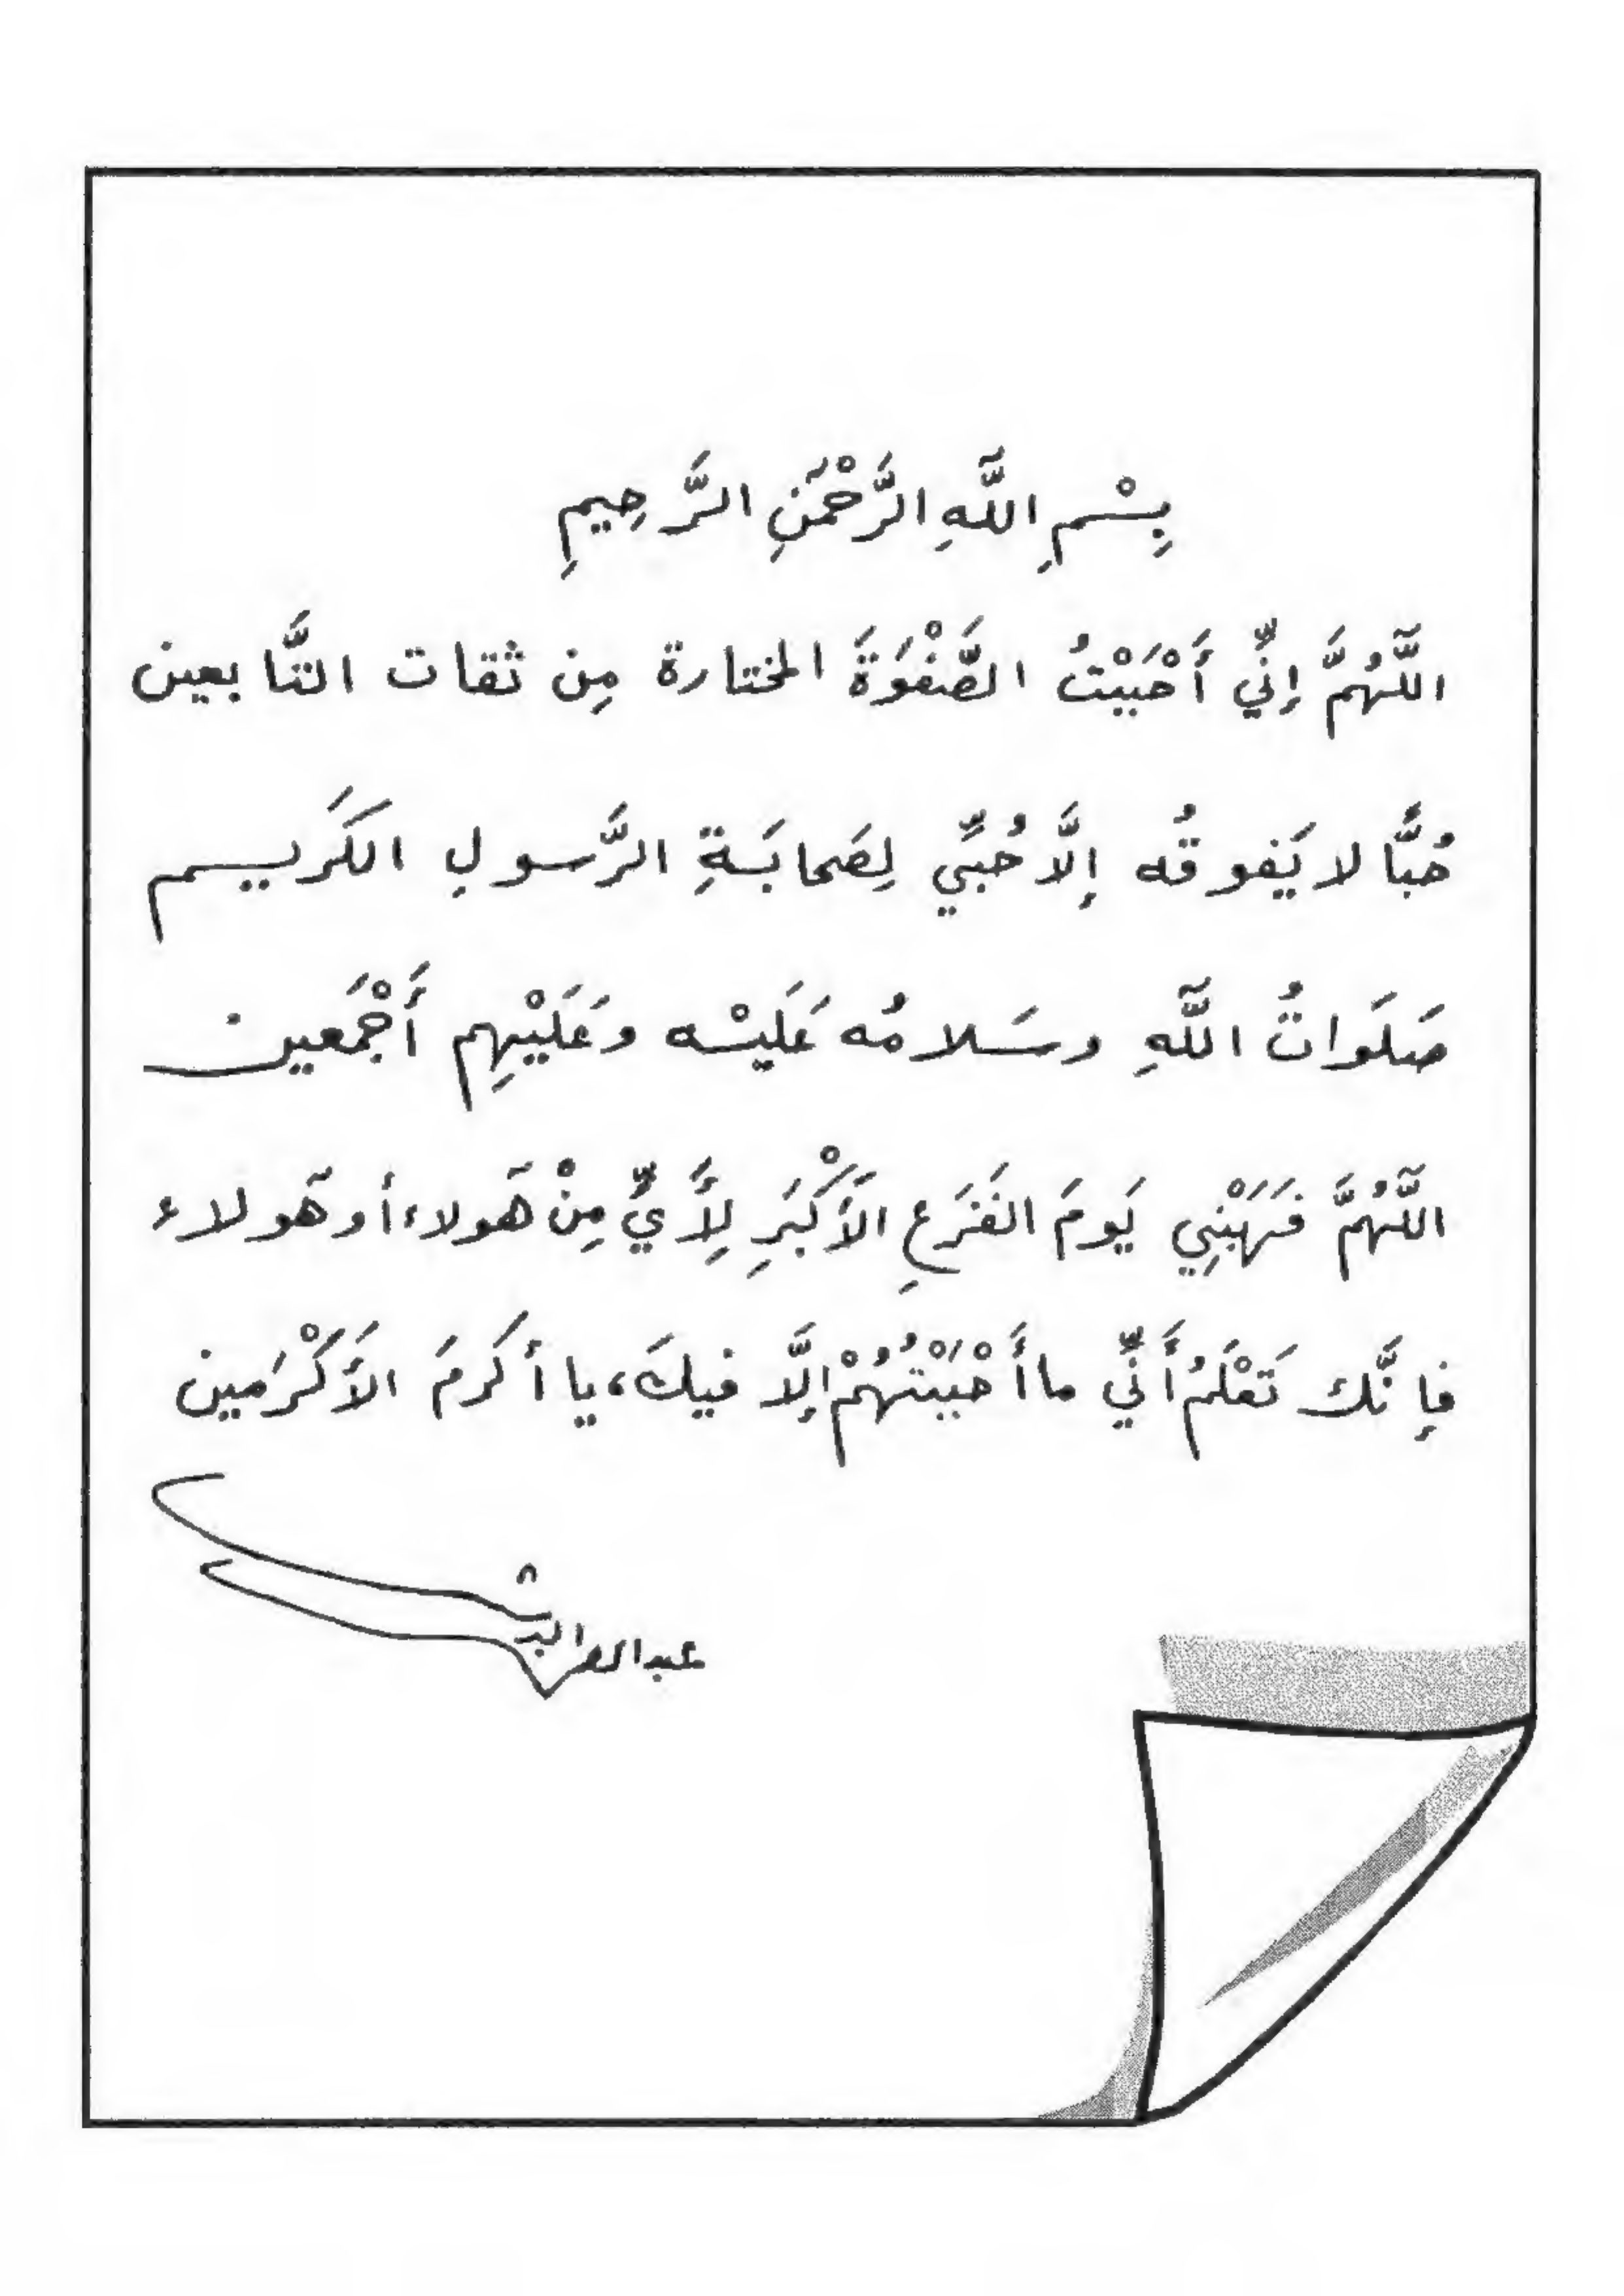 بِسْمِ اللَّهِ الرَّحْمَنِ الرَّحِيمِ
اللَّهُمَّ إنِّي أَحْبَبْتُ الصَّفْوَةَ المختارة مِن ثقات التَّابعين
حُبًّا لا يَفوقُه إلَّا حُبِّي لِصَحابَةِ الرَّسولِ الكَريم
صَلَواتُ اللَّهِ وسَلامُه عَلَيْه وعَلَيْهِم أَجْمَعين
اللَّهُمَّ فَهَبْنِي يَومَ الفَزَعِ الأَكْبَرِ لِأَيٍّ مِنْ هَولاء أو هَولاء
فإنَّك تَعْلَمُ أَنِّي ما أَحْبَبْتُهُمْ إلَّا فيكَ، يا أكرمَ الأَكْرَمين